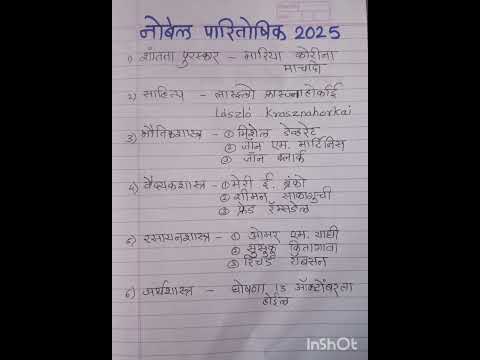 नोबेल पारितोषिक 2025
1) शांतता पुरस्कार – मारिया कोरीना
माचादो
2) साहित्य – लास्लो क्रास्नाहोर्काई
László Krasznahorkai
3) भौतिकशास्त्र – ① मिशेल डेव्होरेट
② जॉन एम. मार्टिनिस
③ जॉन क्लार्क
4) वैद्यकशास्त्र – ① मेरी ई. ब्रंको
② शीमन साकागुची
③ फ्रेड रॅम्सडेल
5) रसायनशास्त्र – ① ओमर एम. याघी
② सुसुमू कितागावा
③ रिचर्ड रॉबसन
6) अर्थशास्त्र – घोषणा 13 ऑक्टोंबरला
होईल
InShOt